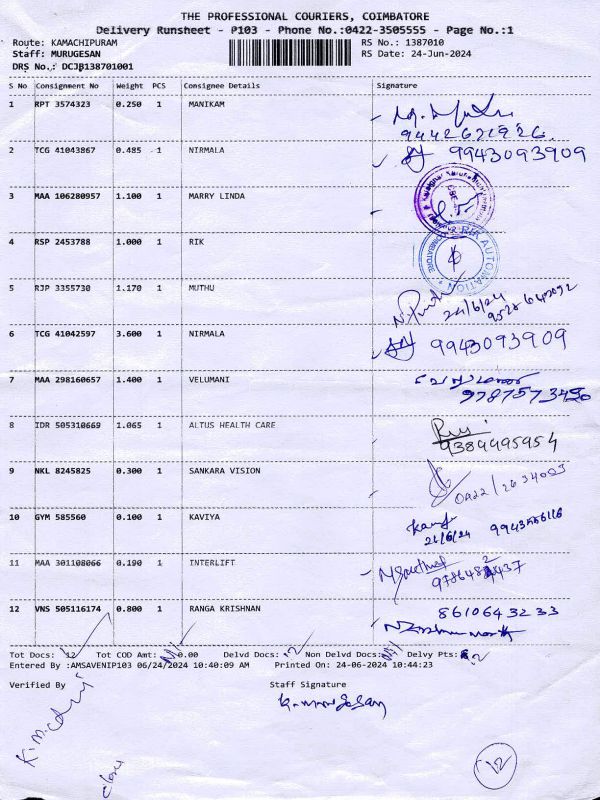 THE PROFESSIONAL COURIERS, COIMBATORE
Delivery Runsheet - P103 - Phone No.:0422-3505555 - Page No.:1
Route: KAMACHIPURAM
RS No.: 1387010
Staff: MURUGESAN
RS Date: 24-Jun-2024
DRS No.: DCJB138701001
S No Consignment No Weight PCS Consignee Details Signature
1 RPT 3574323 0.250 1 MANIKAM
9442621926
2 TCG 41043867 0.485 1 NIRMALA 9943093909
3 MAA 106280957 1.100 1 MARRY LINDA
4 RSP 2453788 1.000 1 RIK
RIK AUTOMATION
COIMBATORE
5 RJP 3355730 1.170 1 MUTHU
24/6/24
6 TCG 41042597 3.600 1 NIRMALA 9943093909
7 MAA 298160657 1.400 1 VELUMANI
8 IDR 505310669 1.065 1 ALTUS HEALTH CARE
9384495954
9 NKL 8245825 0.300 1 SANKARA VISION
10 GYM 585560 0.100 1 KAVIYA
11 MAA 301108066 0.190 1 INTERLIFT
12 VNS 505116174 0.800 1 RANGA KRISHNAN 8610643233
Tot Docs: 12 Tot COD Amt: 0.00 Delvd Docs: 12 Non Delvd Docs: Delvy Pts:
Entered By :AMSAVENIP103 06/24/2024 10:40:09 AM Printed On: 24-06-2024 10:44:23
Verified By
Staff Signature
12